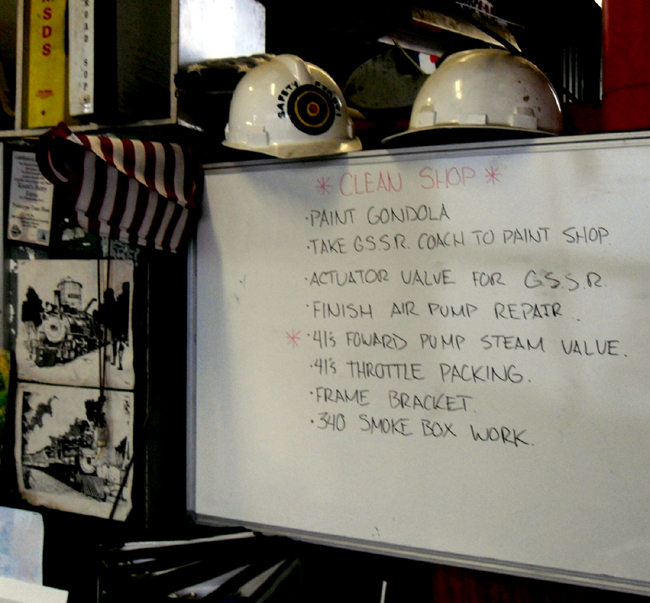 MSDS
ROAD SOP
SAFETY FIRST!
* CLEAN SHOP *
·PAINT GONDOLA
·TAKE G.S.S.R. COACH TO PAINT SHOP.
·ACTUATOR VALVE FOR G.S.S.R.
·FINISH AIR PUMP REPAIR.
* ·41's FOWARD PUMP STEAM VALVE.
·41's THROTTLE PACKING.
·FRAME BRACKET.
·340 SMOKE BOX WORK.